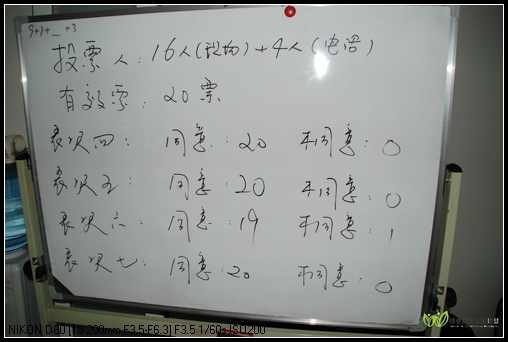 9+1+_+3
投票人：16人（现场）+4人（电话）
有效票：20票
表决四：同意：20 不同意：0
表决五：同意：20 不同意：0
表决六：同意：19 不同意：1
表决七：同意：20 不同意：0
NIKON D80 [18-200mm F3.5-F6.3] F3.5 1/60s ISO200